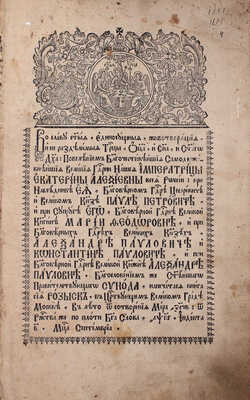 Во славу ст҃ыѧ, единосꙋщныѧ, животворѧщїѧ,
и нераздѣлимыѧ Троицы, Ѻ҆ц҃а̀, и҆ Сн҃а, и҆ Ст҃а́гѡ
Дх҃а: Повелѣнїемъ Благочестивѣйшїѧ Самодер-
жавнѣйшїѧ Великїѧ Гдⷭ҇рни Нашеѧ ИМПЕРАТРИЦЫ
ЕКАТЕРИНЫ АЛЕѮІЕВНЫ всеѧ Рѡссїи: при
Наслѣдникѣ ЕѦ, Благовѣрномъ Гдⷭ҇рѣ Цесаревичѣ
и Великомъ Кнѧзѣ ПАУЛѢ ПЕТРОВИЧѢ, и
при Сꙋпрꙋгѣ ЕГѠ, Благовѣрной Гдⷭ҇рнѣ Великой
Кнѧгинѣ МАРІИ ѲЕОДОРОВНѢ, и при
Благовѣрныхъ Гдⷭ҇рехъ Великихъ Кнѧзехъ
АЛЕѮАНДРѢ ПАУЛОВИЧѢ и
КОНСТАНТІНѢ ПАУЛОВИЧѢ, и при
Благовѣрной Гдⷭ҇рнѣ Великой Кнѧжнѣ АЛЕѮАНДРѢ
ПАУЛОВНѢ, Благословенїемъ же Ст҃ѣйшагѡ
Правителствꙋющагѡ СУНОДА, напечатасѧ книга
сїѧ РОЗЫСКЪ, въ Црⷭ҇твꙋющемъ Великомъ Градѣ
Москвѣ. Въ лѣто ѿ сотворенїѧ Мїра
Ржⷭ҇тва же по плоти Бг҃а Слова, Індікта
Мцⷭ҇а Септемврїа